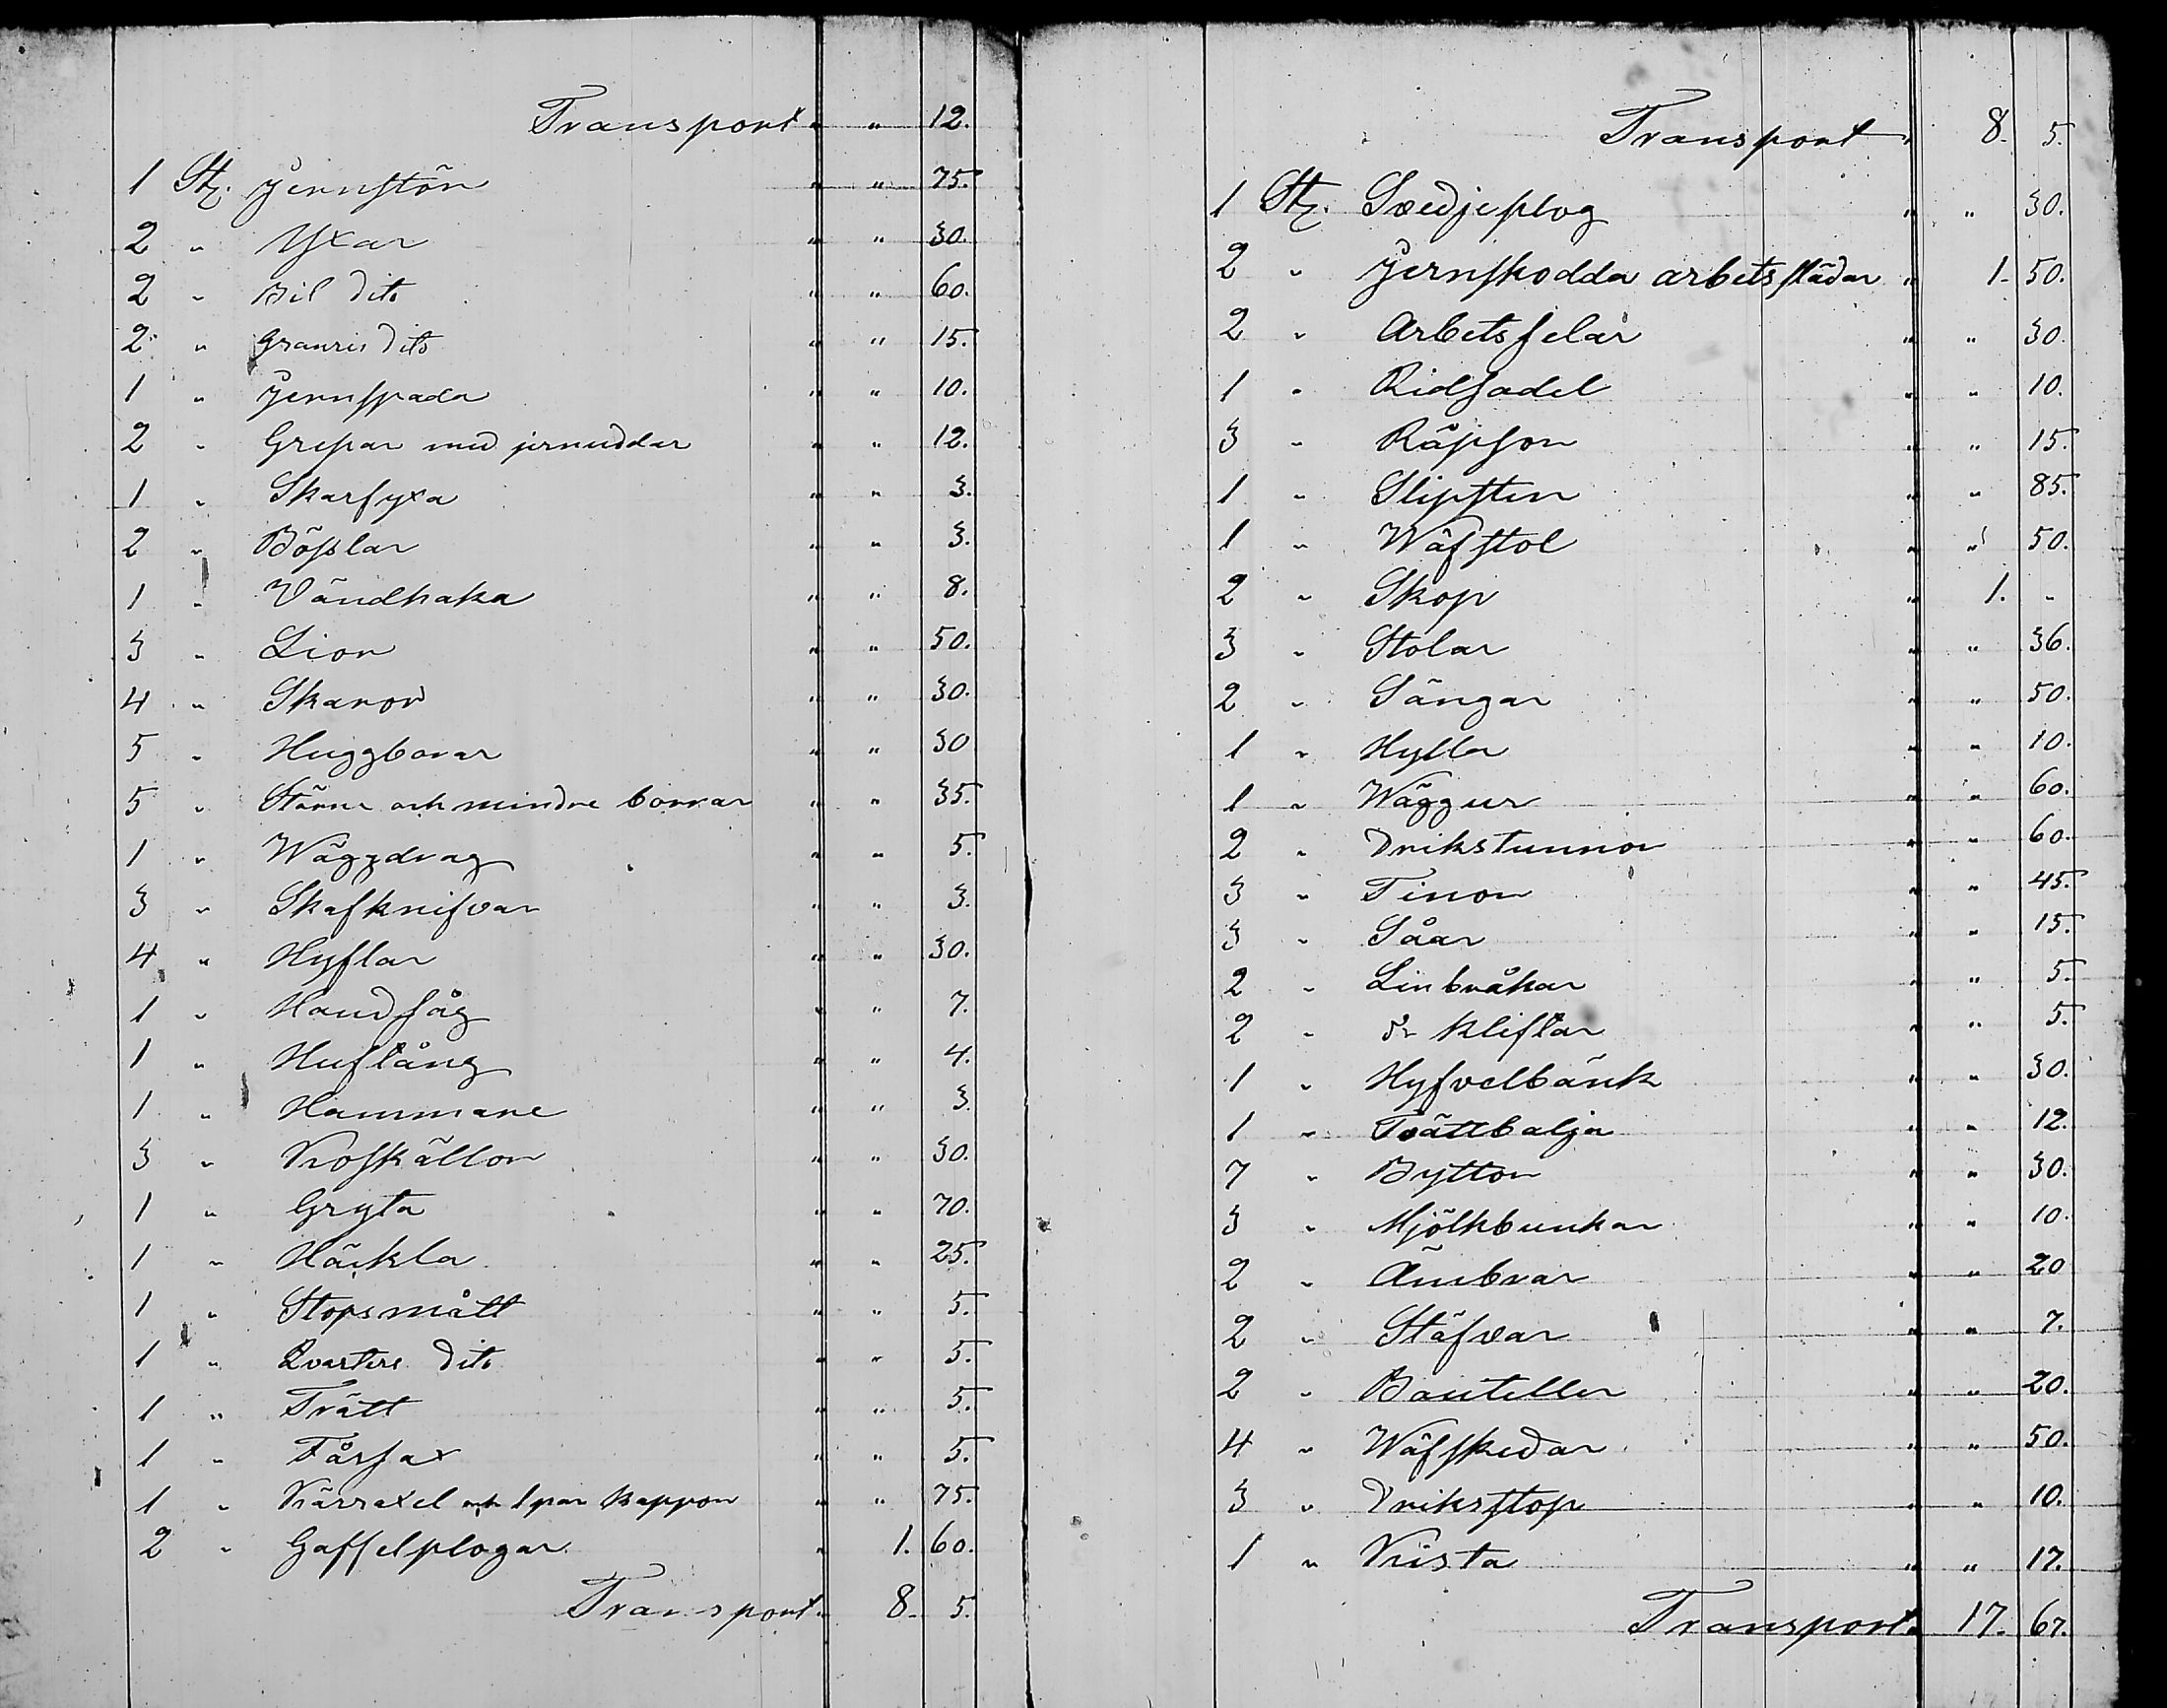 Transport " " 12.
1 St. Jernstör " " 75.
2 " Yxar " " 30.
2 " Bil dito " " 60.
2 " Granris dito " " 15.
1 " Jernspada " " 10.
2 " Grepar med jernuddar " " 12.
1 " Skarfyxa " " 3.
2 " Bösslar " " 3.
1 " Vändhaka " " 8.
3 " Lior " " 50.
4 " Skäror " " 30.
5 " Huggborar " " 30
5 " Större och mindre borrar " " 35.
1 " Wäggdrag " " 5.
3 " Skafknifvar " " 3.
4 " Hyflar " " 30.
1 " Handsåg " " 7.
1 " Huftång " " 4.
1 " Hammare " " 3.
3 " Koskällor " " 30.
1 " Gryta " " 70.
1 " Häckla " " 25.
1 " Stopsmått " " 5.
1 " Qvarters dito " " 5.
1 " Trätt " " 5.
1 " Fårsax " " 5.
1 " Kärraxel och 1 par kappor " " 75.
2 " Gaffelplogar " 1. 60.
Transport " 8. 5.
Transport " 8. 5.
1 St. Swedjeplog " " 30.
2 " Jernskodda arbetsslädar " 1. 50.
2 " Arbetsselar " " 30.
1 " Ridsadel " " 10.
3 " Räfsor " " 15.
1 " Slipsten " " 85.
1 " Wäfstol " " 50.
2 " Skåp " 1. "
3 " Stolar " " 36.
2 " Sängar " " 50.
1 " Hylla " " 10.
1 " Wäggur " " 60.
2 " Drikstunnor " " 60.
3 " Tinor " " 45.
3 " Såar " " 15.
2 " Linbråkar " " 5.
2 " do kliftar " " 5.
1 " Hyfvelbänk " " 30.
1 " Tvättbalja " " 12.
7 " Byttor " " 30.
3 " Mjölkbunkar " " 10.
2 " Ämbrar " " 20
2 " Stäfvar " " 7.
2 " Bouteller " " 20.
4 " Wäfskedar " " 50.
3 " Driksstop " " 10.
1 " Kista " " 17.
Transport " 17. 67.